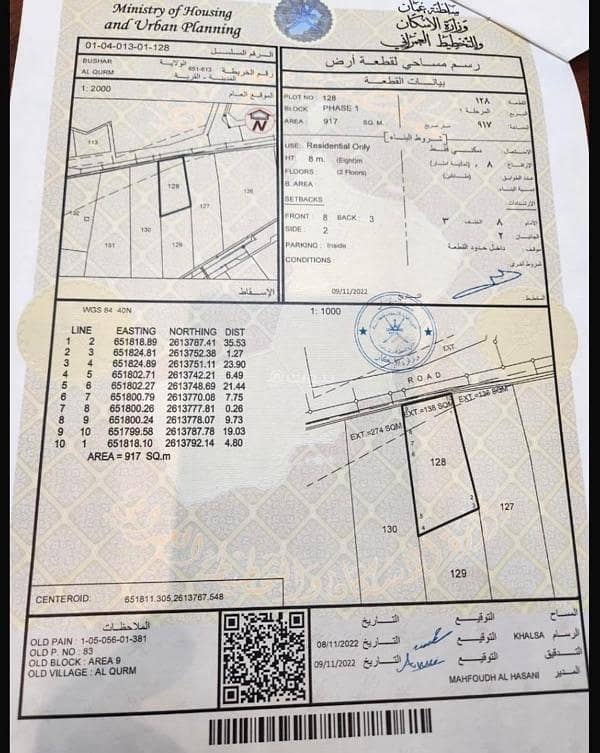 Ministry of Housing
and Urban Planning
سلطنة عمان
وزارة الإسكان
والتخطيط العمراني
01-04-013-01-128 الرقم المسلسل
BUSHAR الولاية
651-613 رقم الخريطة
AL QURM المدينة - القرية
1: 2000 الموقع العام
N
113
128
127
126
132
131
130
129
الإسقاط
رسم مساحي لقطعة أرض
بيانات القطعة
PLOT NO : 128 ١٢٨ القطعة
BLOCK PHASE 1 المرحلة ١ المربع
AREA : 917 SQ. M. متر مربع ٩١٧ المساحة
شروط البناء
USE: Residential Only سكني فقط الاستعمال
HT 8 m. (Eight)m ٨ (ثمانية أمتار) الارتفاع
FLOORS (2 Floors) (طابقين) عدد الطوابق
B. AREA نسبة البناء
SETBACKS الارتدادات
FRONT : 8 BACK : 3 ٣ الخلف ٨ الأمام
SIDE : 2 ٢ الجانبان
PARKING : Inside داخل حدود القطعة موقف
CONDITIONS : شروط أخرى
09/11/2022 التاريخ
المخطط
WGS 84 40N
1: 1000
LINE EASTING NORTHING DIST
1 2 651818.89 2613787.41 35.53
2 3 651824.81 2613752.38 1.27
3 4 651824.89 2613751.11 23.90
4 5 651802.71 2613742.21 6.49
5 6 651802.27 2613748.69 21.44
6 7 651800.79 2613770.08 7.75
7 8 651800.26 2613777.81 0.26
8 9 651800.24 2613778.07 9.73
9 10 651799.58 2613787.78 19.03
10 1 651818.10 2613792.14 4.80
AREA = 917 SQ.m
EXT.
ROAD
EXT.=138 SQM
EXT.=126 SQM
EXT.=274 SQM
128
127
130
129
CENTEROID: 651811.305,2613767.548
الملاحظات
OLD PAIN : 1-05-056-01-381
OLD P. NO : 83
OLD BLOCK : AREA 9
OLD VILLAGE : AL QURM
التاريخ التوقيع المساح
08/11/2022 التاريخ التوقيع KHALSA الرسام
09/11/2022 التاريخ التوقيع التدقيق
MAHFOUDH AL HASANI المدير